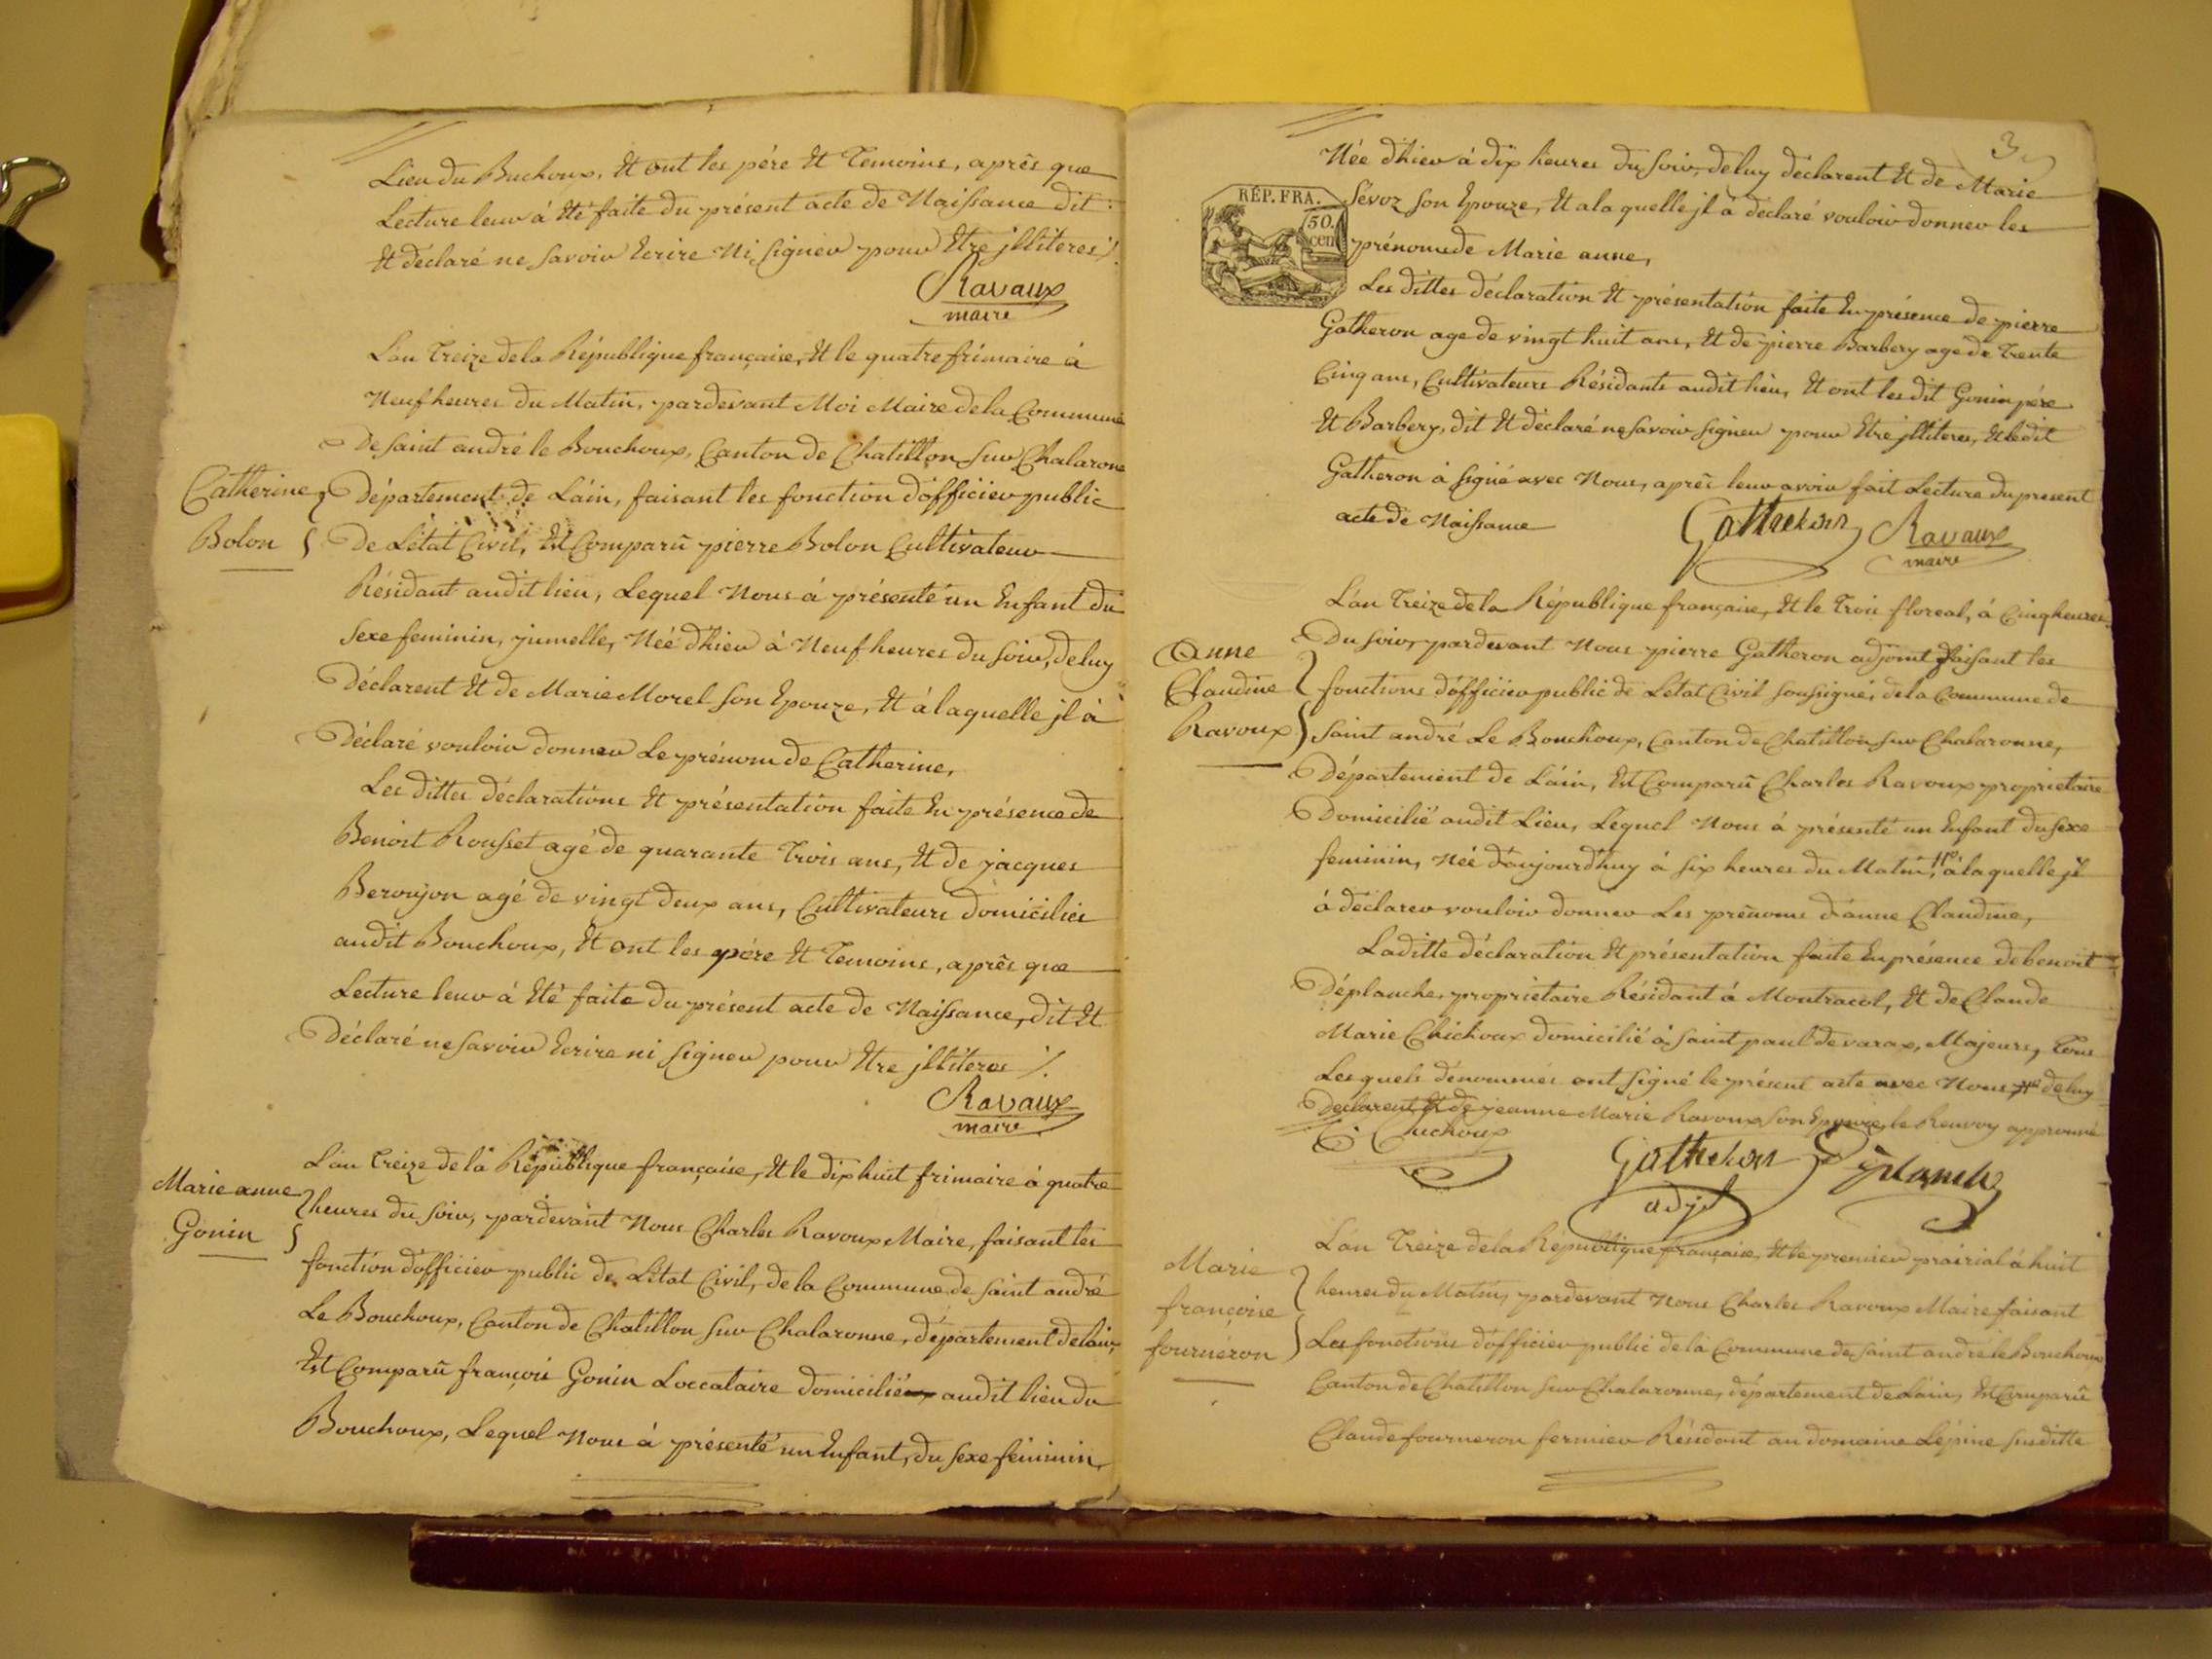 Lieu du Buchoux, Et ont les pére Et Temoins, aprês que
Lecture leur à Eté faite du présent acte de Naissance dit
Et declaré ne savoir Ecrire Ni Signer pour Etre jlliteres ./.
Ravaux
maire
L'an Treize dela République française, Et le quatre frimaire à
Neuf heures du Matin, pardevant Moi Maire dela Commune
De saint andré le Bouchoux, Canton de Chatillon Sur Chalarone
Catherine
Bolon
Département de L'ain, faisant les fonction d'officier public
De L'état Civil, Est Comparû pierre Bolon Cultivateur
Résidant audit lieu, Lequel Nous à présenté un Enfant du
Sexe feminin, jumelle, Née d'hier à Neuf heures du Soir, deluy
Déclarent Et de Marie Morel son Epouze, Et à laquelle jl à
Déclaré vouloir donner Le prénom de Catherine,
Les dittes déclarations Et présentation faite En présence de
Benoit Rousset agé de quarante Trois ans, Et de jacques
Beroujon agé de vingt deux ans, Cultivateurs domiciliés
audit Bouchoux, Et ont les pére Et Temoins, aprês que
Lecture leur à Eté faite du présent acte de Naissance, dit Et
Déclaré ne savoir Ecrire ni Signer pour Etre jlliteres ./.
Ravaux
maire
Marie anne
Gonin
L'an Treize dela République française, Et le dix huit frimaire à quatre
heures du Soir, pardevant Nous Charles Ravoux Maire, faisant les
fonction d'officier public de L'état Civil, de la Commune de saint andré
Le Bouchoux, Canton de Chatillon Sur Chalaronne, département delain,
Est Comparû françois Gonin Loccataire domicilié audit lieu du
Bouchoux, Lequel Nous à présenté un Enfant, du Sexe féminin,
3
Née d'hier à dix heures du Soir, deluy déclarent Et de Marie
RÉP. FRA.
50.
cen
Sévoz son Epouze, Et ala quelle jl à déclaré vouloir donner les
prénoms de Marie anne,
Les dittes déclaration Et présentation faite En présence de pierre
Gatheron age de vingt huit ans, Et de pierre Barbery age de Trente
Cinq ans, Cultivateurs Résidants audit lieu, Et ont les dit Gonin pére
Et Barbery, dit Et déclaré ne savoir signer pour Etre jlliteres, Et ledit
Gatheron à Signé avec Nous, aprês leur avoir fait Lecture du present
acte de Naissance
Gatheron Ravaux
maire
L'an Treize dela République française, Et le Trois floreal, à Cinq heures
Anne
Claudine
Ravoux
Du Soir, pardevant Nous pierre Gatheron adjoint faisant les
fonctions d'officier public de L'état Civil soussigné, dela Commune de
saint andré Le Bouchoux, Canton de Chatillon Sur Chalaronne,
Département de L'ain, Est Comparû Charles Ravoux proprietaire
Domicilié audit Lieu, Lequel Nous à présenté un Enfant du sexe
feminin, Née d'aujourd'huy à six heures du Matin, à laquelle jl
à déclarer vouloir donner Les prénoms d'anne Claudine,
Laditte déclaration Et présentation faite En présence de benoit
Déplanche, proprietaire Résidant à Montracol, Et de Claude
Marie Chichoux domicilié à saint paul de varax, Majeurs, Tous
Lesquels dénommés ont signé le présent acte avec Nous deluy
Déclarent Et de jeanne Marie Ravoux son Epouze, le Renvoy approuvé
Gatheron
adjt
Marie
françoise
fournéron
L'an Treize dela République française, Et le premier prairial à huit
heures du Matin, pardevant Nous Charles Ravoux Maire faisant
Les fonctions d'officier public de la Commune de saint andré le Bouchoux
Canton de Chatillon Sur Chalaronne, département de Lain, Est Comparû
Claude fourneron fermier Résidant au domaine Lépine susditte